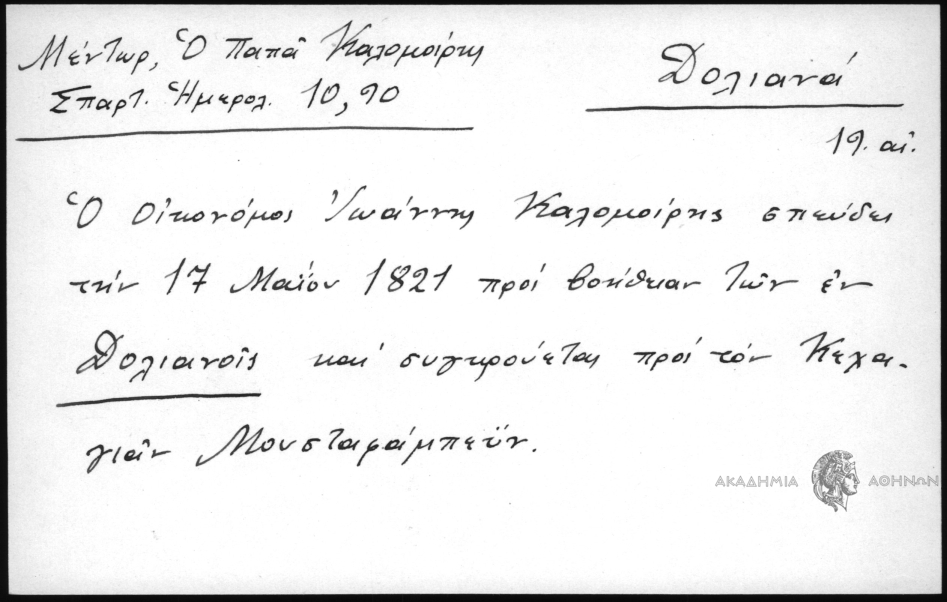 Μέντωρ, Ὁ Παπᾶ Καλομοίρης
Σπαρτ. Ἡμερολ. 10,90
Δολιανά
19. αἰ.
Ὁ Οἰκονόμος Ἰωάννης Καλομοίρης σπεύδει
τήν 17 Μαΐου 1821 πρός βοήθειαν τῶν ἐν
Δολιανοῖς καί συγκρούεται πρός τόν Κεχα-
γιᾶν Μουσταφάμπεϋν.
ΑΚΑΔΗΜΙΑ ΑΘΗΝΩΝ